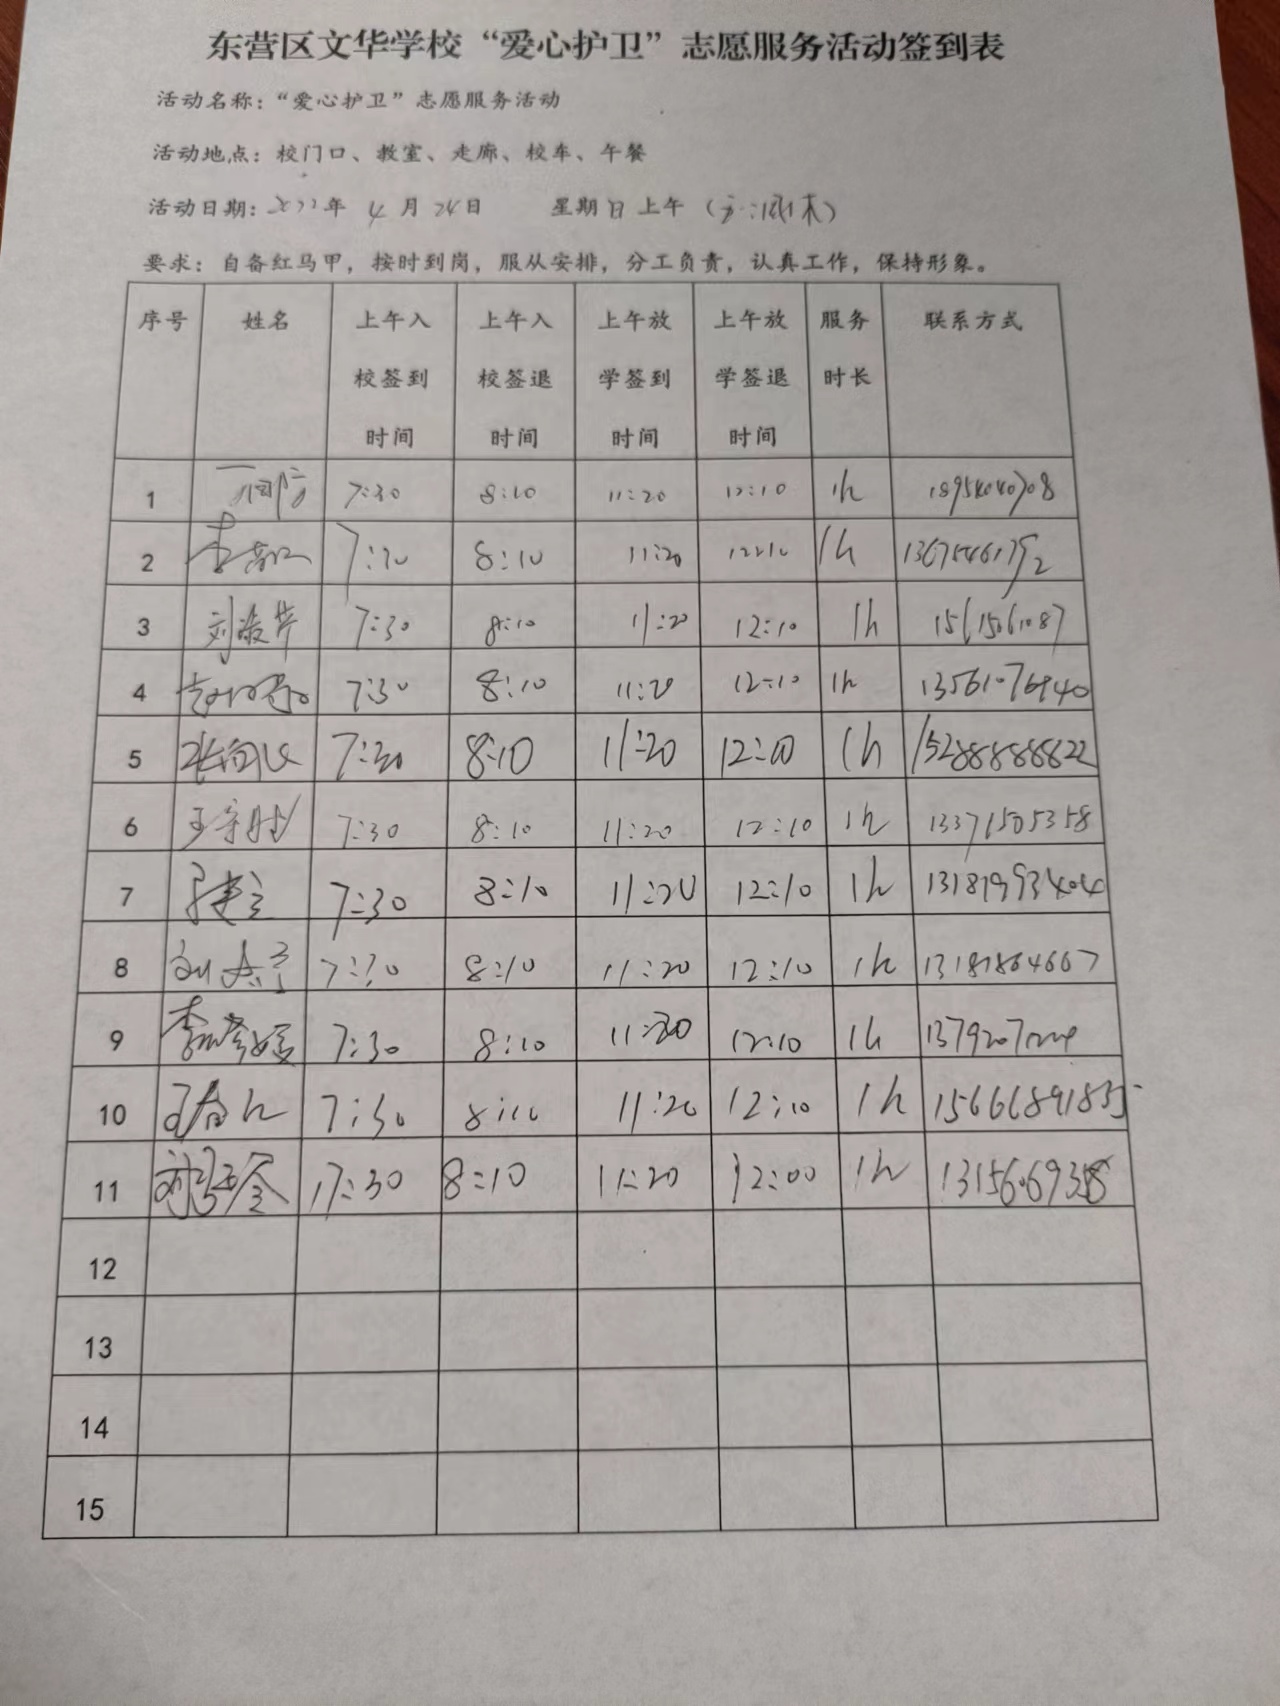 东营区文华学校“爱心护卫”志愿服务活动签到表
活动名称：“爱心护卫”志愿服务活动
活动地点：校门口、教室、走廊、校车、午餐
活动日期：年 4月24日 星期日上午
要求：自备红马甲，按时到岗，服从安排，分工负责，认真工作，保持形象。
序号 姓名 上午入校签到时间 上午入校签退时间 上午放学签到时间 上午放学签退时间 服务时长 联系方式
1 7:30 8:10 11:20 12:10 1h 18954040708
2 8:10 11:20 12:10 1h
3 刘淑芹 7:30 8:10 11:20 12:10 1h 15615061087
4 7:30 8:10 11:20 12:10 1h 13561076940
5 7:30 8:10 11:20 12:00 1h 15288888822
6 王守财 7:30 8:10 11:20 12:10 1h 13371505358
7 7:30 8:10 11:20 12:10 1h 13181993404
8 7:30 8:10 11:20 12:10 1h 13181864667
9 7:30 8:10 11:20 12:10 1h
10 7:30 8:10 11:20 12:10 1h 15666891835
11 17:30 8:10 11:20 12:00 1h
12
13
14
15